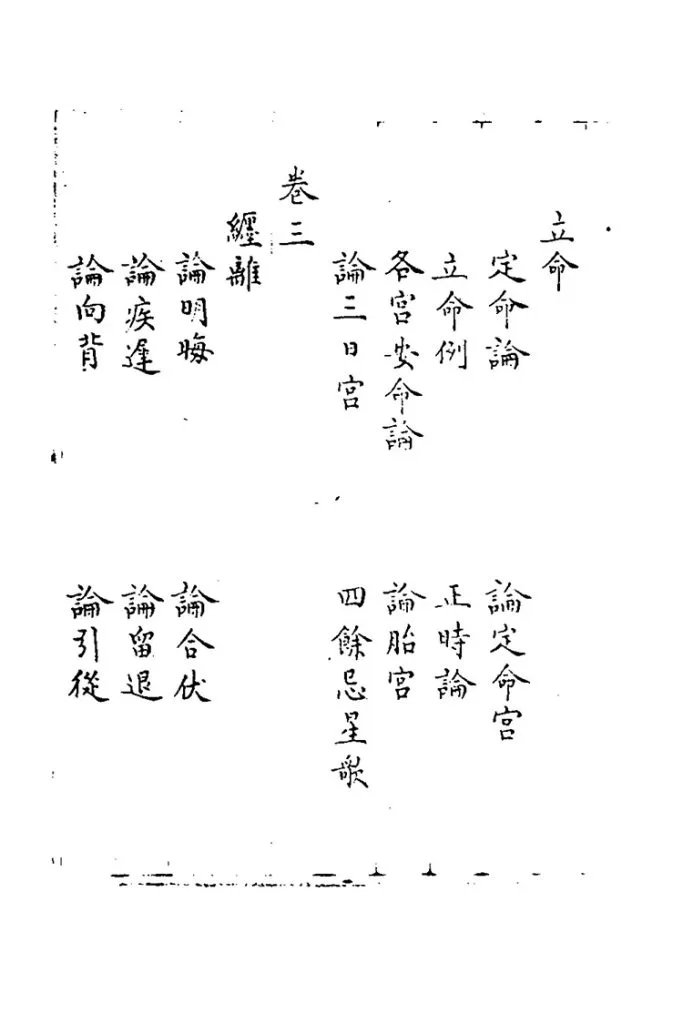 立命
定命論 論定命宮
立命例 正時論
各宮安命論 論胎宮
論三日宮 四餘忌星歌
卷三
纏離
論明晦 論合伏
論疾遲 論留退
論向背 論引從